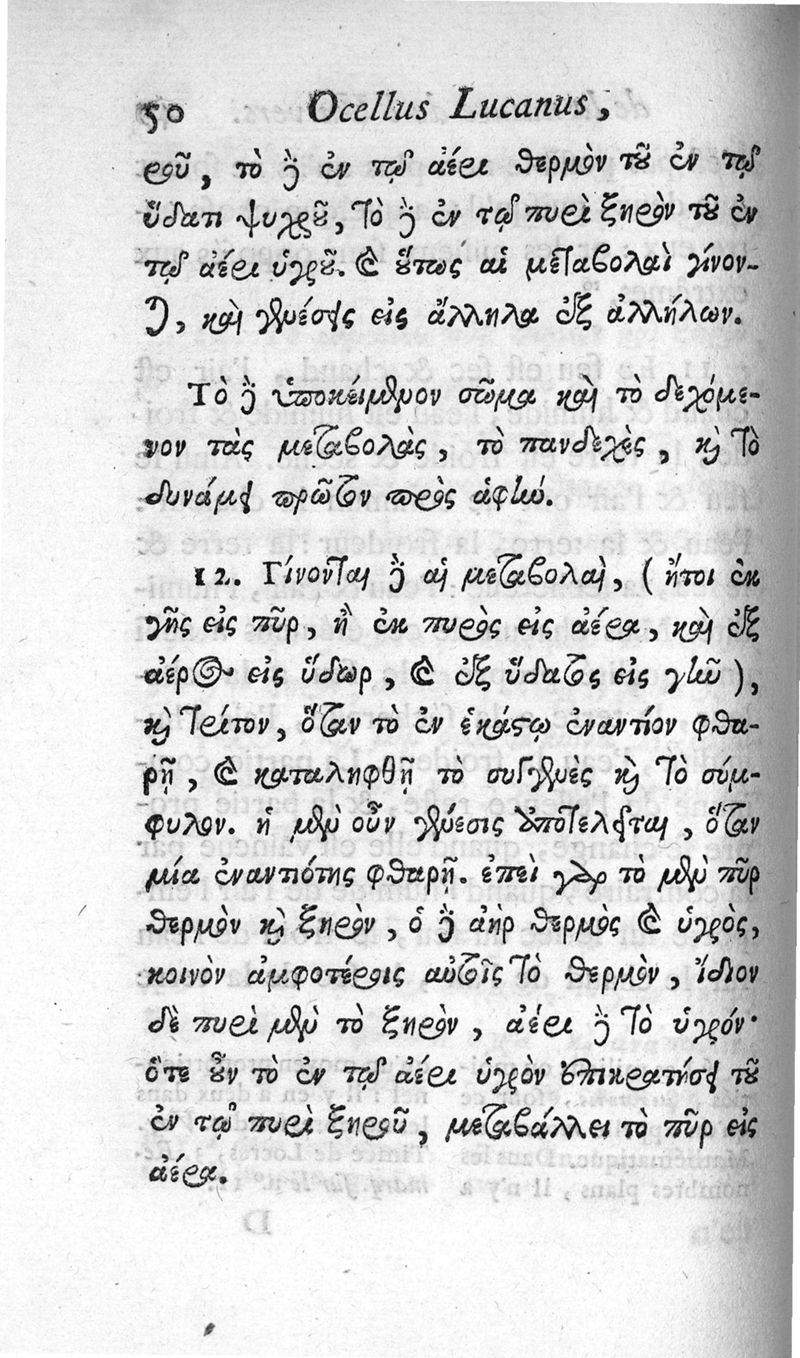 50 Ocellus Lucanus,
ροῦ, τὸ δὲ ἐν τῷ ἀέρι θερμὸν τοῦ ἐν τῷ
ὕδατι ψυχροῦ, τὸ δὲ ἐν τῷ πυρὶ ξηρὸν τοῦ ἐν
τῷ ἀέρι ὑγροῦ. καὶ οὕτως αἱ μεταβολαὶ γίνον-
ται, καὶ γενέσεις εἰς ἄλληλα ἐξ ἀλλήλων.
Τὸ δὲ ὑποκείμενον σῶμα καὶ τὸ δεχόμε-
νον τὰς μεταβολὰς, τὸ πανδεχὲς, καὶ τὸ
δυνάμει πρῶτον πρὸς ἁφήν.
12. Γίνονται δὲ αἱ μεταβολαὶ, (ἤτοι ἐκ
γῆς εἰς πῦρ, ἢ ἐκ πυρὸς εἰς ἀέρα, καὶ ἐξ
ἀέρος εἰς ὕδωρ, καὶ ἐξ ὕδατος εἰς γῆν),
καὶ τρίτον, ὅταν τὸ ἐν ἑκάστῳ ἐναντίον φθα-
ρῇ, καὶ καταληφθῇ τὸ συγγενὲς καὶ τὸ σύμ-
φυλον. ἡ μὲν οὖν γένεσις ἀποτελεῖται, ὅταν
μία ἐναντιότης φθαρῇ. ἐπεὶ γὰρ τὸ μὲν πῦρ
θερμὸν καὶ ξηρὸν, ὁ δὲ ἀὴρ θερμὸς καὶ ὑγρὸς,
κοινὸν ἀμφοτέροις αὐτοῖς τὸ θερμὸν, ἴδιον
δὲ πυρὶ μὲν τὸ ξηρὸν, ἀέρι δὲ τὸ ὑγρόν·
ὅτε οὖν τὸ ἐν τῷ ἀέρι ὑγρὸν ἐπικρατήσει τοῦ
ἐν τῷ πυρὶ ξηροῦ, μεταβάλλει τὸ πῦρ εἰς
ἀέρα.